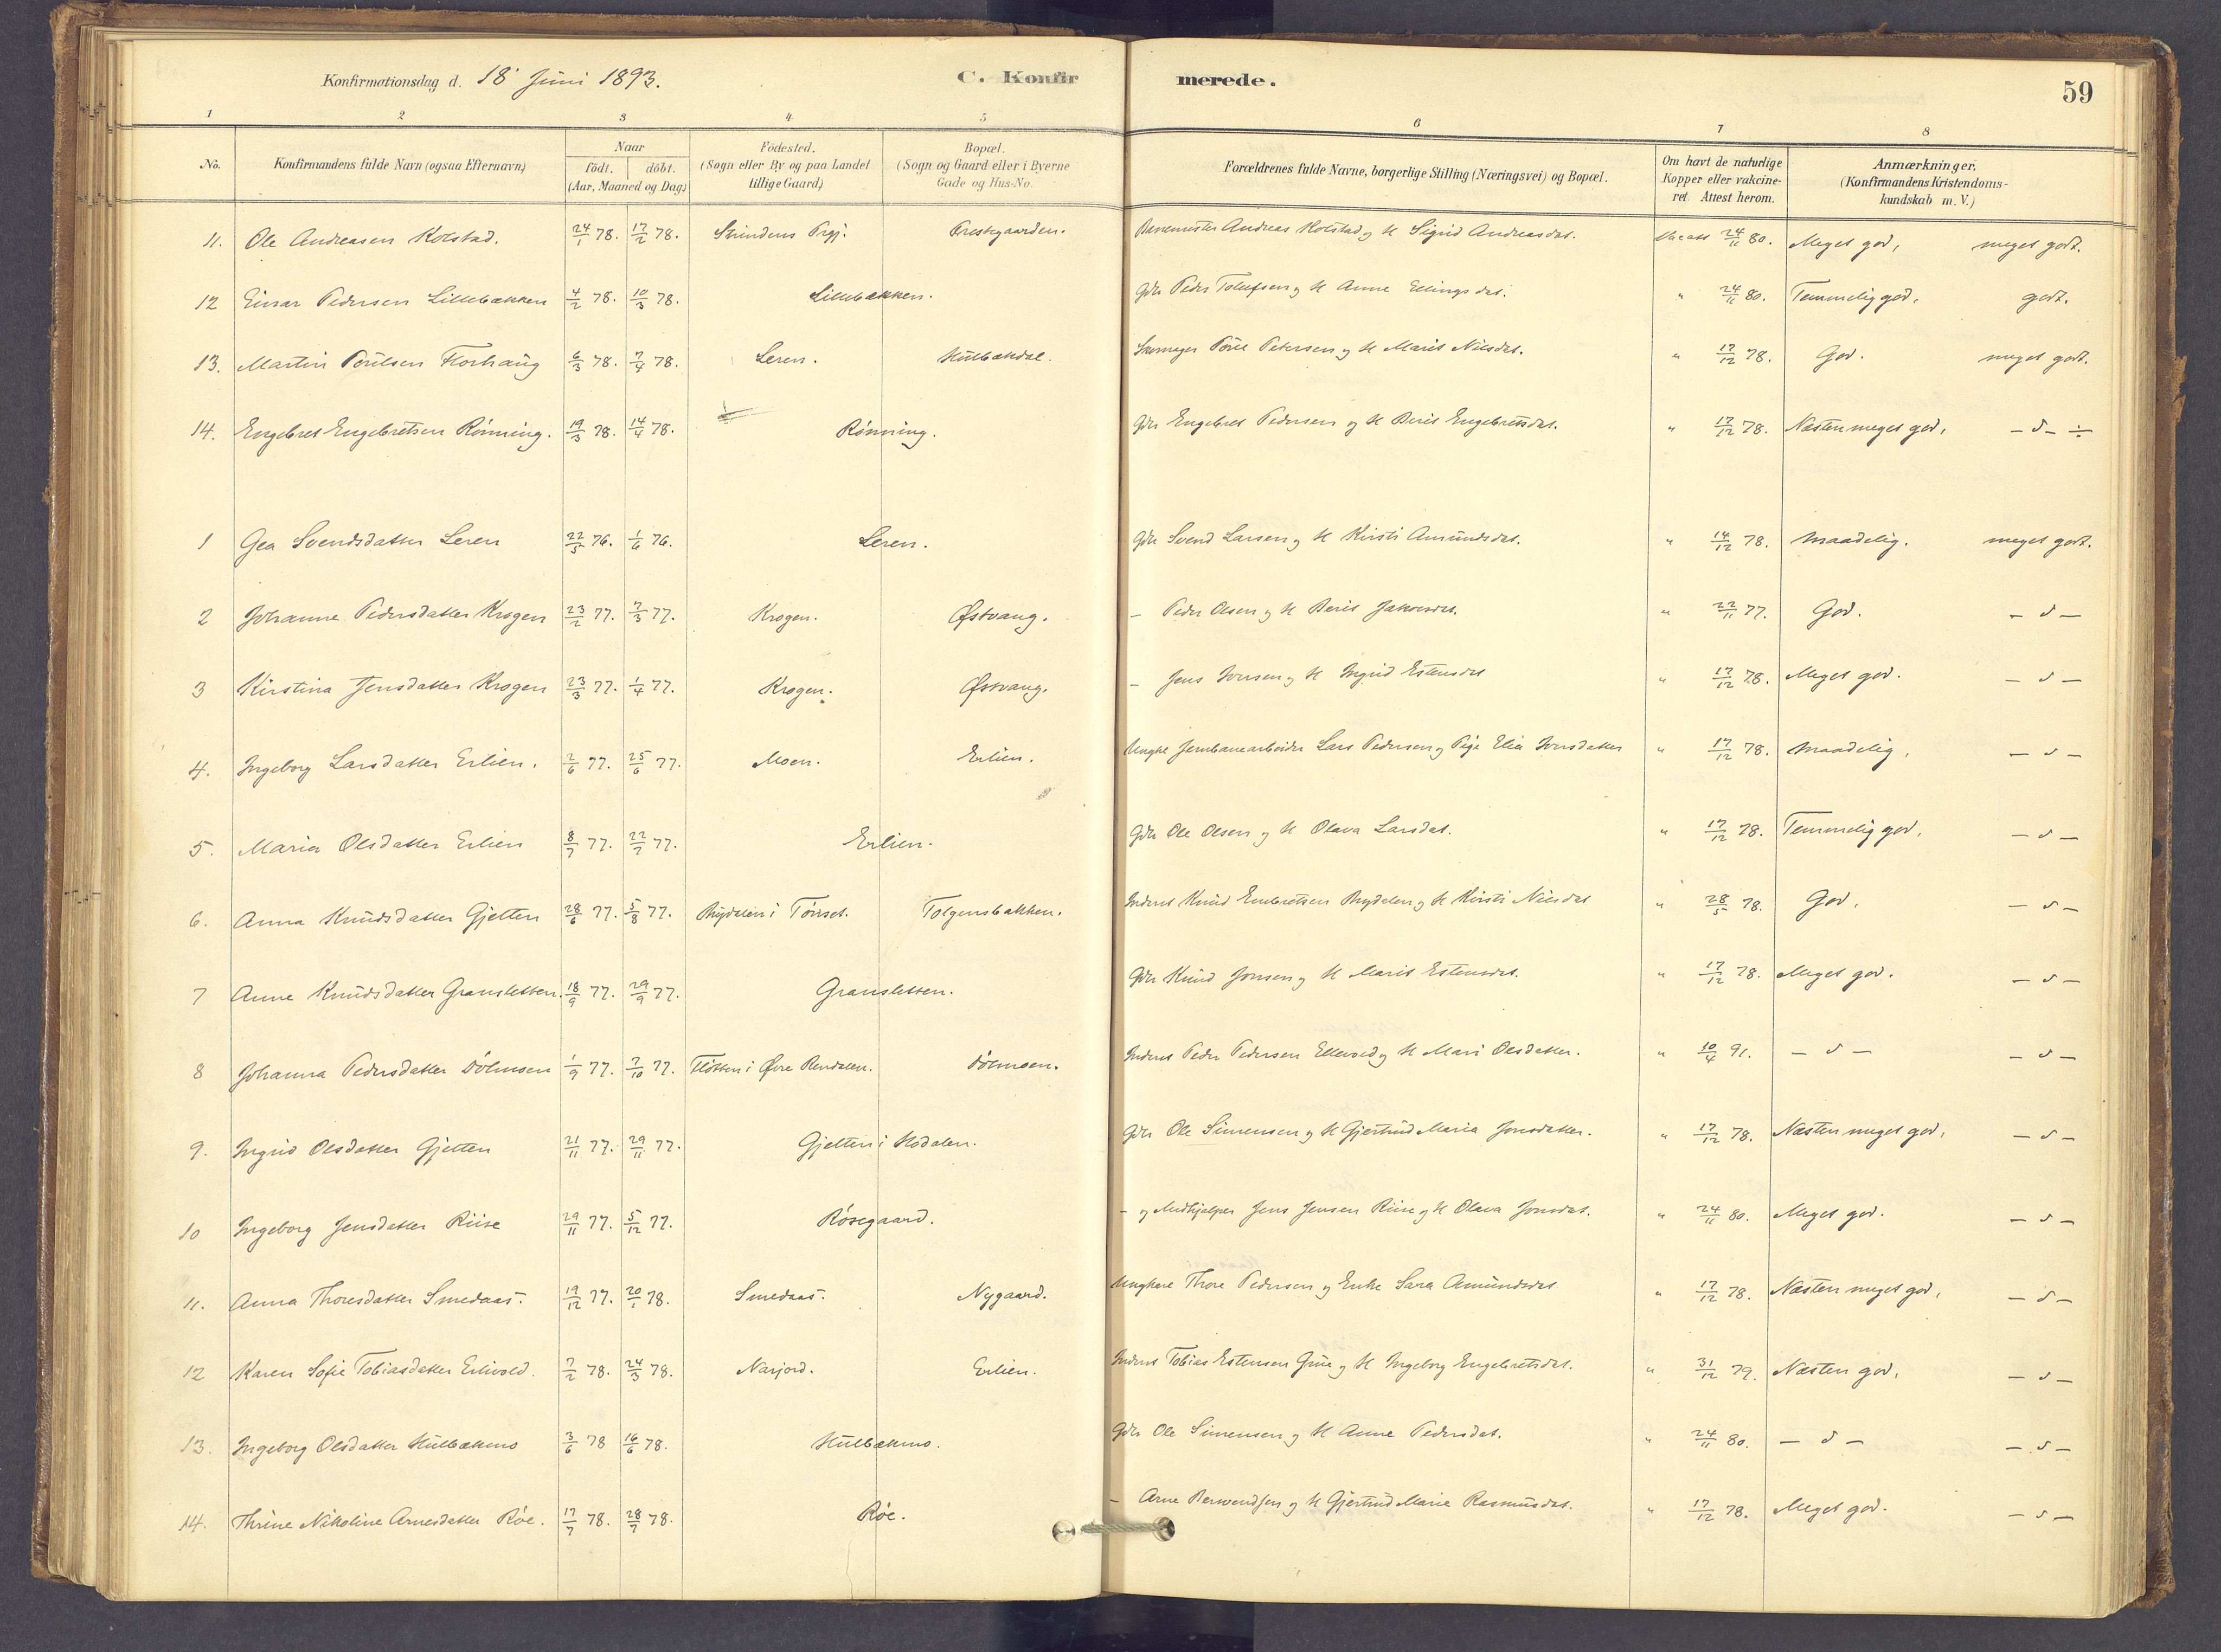 Konfirmationsdag d. 18' Juni 1893. C. Konfirmerede. 59
1 2 3 4 5 6 7 8
No. Konfirmandens fulde Navn (ogsaa Efternavn) Naar födt. döbt. (Aar, Maaned og Dag) Födested. (Sogn eller By og paa Landet tillige Gaard) Bopæl. (Sogn og Gaard eller i Byerne Gade og Hus-No. Forældrenes fulde Navne, borgerlige Stilling (Næringsvei) og Bopæl. Om havt de naturlige Kopper eller vakcineret. Attest herom. Anmærkninger, (Konfirmandens Kristendomskundskab m. V.)
11. Ole Andreasen Kolstad. 24/1 78. 17/2 78. Prgj. Prestegaarden. Andreas Kolstad og H Sigrid Andreasdat. 24/11 80. Meget god, meget godt.
12 Einar Pedersen Lillebakken 4/2 78. 10/3 78. Lillebakken. Gdr Peder Tollefsen og H Anne Ellingsdat. " 24/11 80. Temmelig god, godt.
13. Martin Poulsen Florhaug 6/3 78. 7/4 78. Leren. Hulbækdal. Skomager Poul Petersen og H Marit Nilsdat. " 17/12 78. God. meget godt.
14. Engebret Engebretsen Rönning. 19/3 78. 14/4 78. Rönning. Gdr Engebret Pedersen og H Berit Engebretsdat. " 17/12 78. Næsten meget god, – d – ÷
1 Gea Svendsdatter Leren 22/5 76. 1/6 76. Leren. Gdr Svend Larsen og H Kirsti Amundsdat. " 14/12 78. Maadelig. meget godt.
2 Johanne Pedersdatter Krogen 23/2 77. 7/3 77. Krogen. Østvang. – Peder Olsen og H Berit Jakobsdat. " 22/11 77. God. – d –
3 Kirstina Jensdatter Krogen 23/3 77. 1/4 77. Krogen. Østvang. – Jens Iversen og H Ingrid Estensdat " 17/12 78. Meget god. – d –
4. Ingeborg Larsdatter Erlien. 2/6 77. 25/6 77. Moen. Erlien. Ungkr Jernbanearbeider Lars Pedersen og Pige Elia Jonsdatter " 17/12 78. Maadelig, – d –
5. Maria Olsdatter Erlien 8/7 77. 22/7 77. Erlien. Gdr Ole Olsen og H Olava Larsdat. " 17/12 78. Temmelig god, – d –
6. Anna Knudsdatter Gjelten 28/6 77. 5/8 77. Brydalen i Tönset. Tolgensbakken. Inderst Knud Embretsen Brydalen og H Kirsti Nilsdat " 28/5 78. God, – d –
7 Anne Knudsdatter Gransletten. 18/9 77. 29/9 77. Gransletten. Gdr Knud Jonsen og H Marit Estensdat. " 17/12 78. Meget god. – d –
8 Johanna Pedersdatter Dölmoen 1/9 77. 7/10 77. Flötten i Øvre Rendalen. Dölmoen. Inderst Peder Pedersen Ellevold og H Mari Olsdatter. " 10/4 91. – d – – d –
9. Ingrid Olsdatter Gjelten 21/11 77. 29/11 77. Gjelten i Hodalen. Gdr Ole Simensen og H Gjertrud Maria Jonsdatter. " 17/12 78. Næsten meget god, – d –
10 Ingeborg Jensdatter Riise 29/11 77. 5/12 77. Rösegaard. – og Medhjelper Jens Jensen Riise og H Olava Jonsdat. " 24/11 80. Meget god. – d –
11. Anna Thoresdatter Smedaas. 19/12 77. 20/1 78. Smedaas. Nygaard. Ungkarl Thore Pedersen og Enke Sara Amundsdat " 17/12 78. Næsten meget god, – d –
12 Karen Sofie Tobiasdatter Erlivold. 7/2 78. 24/3 78. Narjord. Erlien. Inderst Tobias Estensen Grue og H Ingeborg Engebretsdat. " 31/12 79. Næsten god, – d –
13. Ingeborg Olsdatter Hulbækmo 3/6 78 16/6 78. Hulbækmo. Gdr Ole Simensen og H Anne Pedersdat. " 24/11 80. – d – – d –
14. Thrine Nikoline Arnesdatter Röe. 17/7 78. 28/7 78. Röe. – Arne Berwendsen og H Gjertrud Marie Rasmusdat. " 17/12 78. Meget god. – d –